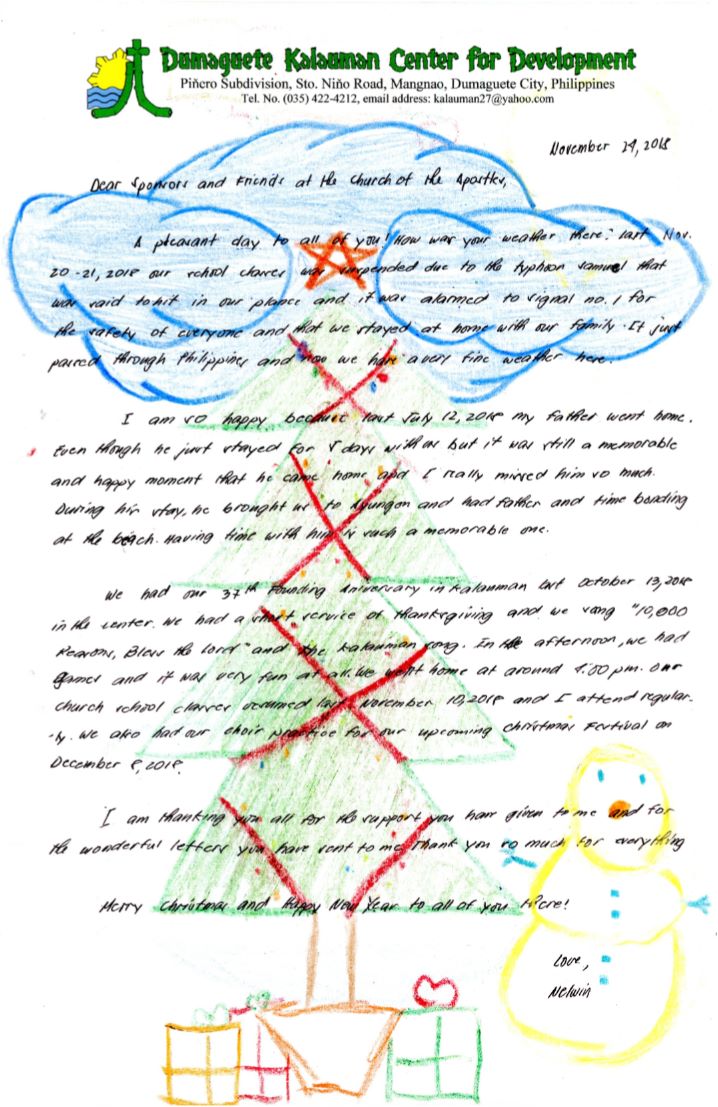 Dumaguete Kalauman Center for Development
Piñero Subdivision, Sto. Niño Road, Mangnao, Dumaguete City, Philippines
Tel. No. (035) 422-4212, email address: kalauman27@yahoo.com
November 29, 2018
Dear Sponsors and Friends at the Church of the Apostles,
A pleasant day to all of you! How was your weather there? last Nov.
20-21, 2018 our school classes was suspended due to the typhoon samuel that
was said to hit in our place and it was alarmed to signal no. 1 for
the safety of everyone and that we stayed at home with our family. It just
passed through Philippines and now we have a very fine weather here.
I am so happy because last July 12, 2018 my father went home.
Even though he just stayed for 5 days with us but it was still a memorable
and happy moment that he came home and I really missed him so much.
During his stay, he brought us to and had father and time bonding
at the beach. Having time with him is such a memorable one.
We had our 37th Founding Aniversary in Kalauman last October 13, 2018
in the center. We had a short service of thanksgiving and we song "10,000
Reasons, Bless the Lord" and the Kalauman song. In the afternoon, we had
games and it was very fun at all. We went home at around pm. Our
church school classes resumed last November 10, 2018 and I attend regular-
ly. We also had our choir practice for our upcoming Christmas Festival on
December 8, 2018.
I am thanking you all for the support you have given to me and for
the wonderful letters you have sent to me. Thank you so much for everything
Merry Christmas and Happy New Year to all of you there!
Love,
Nelwin